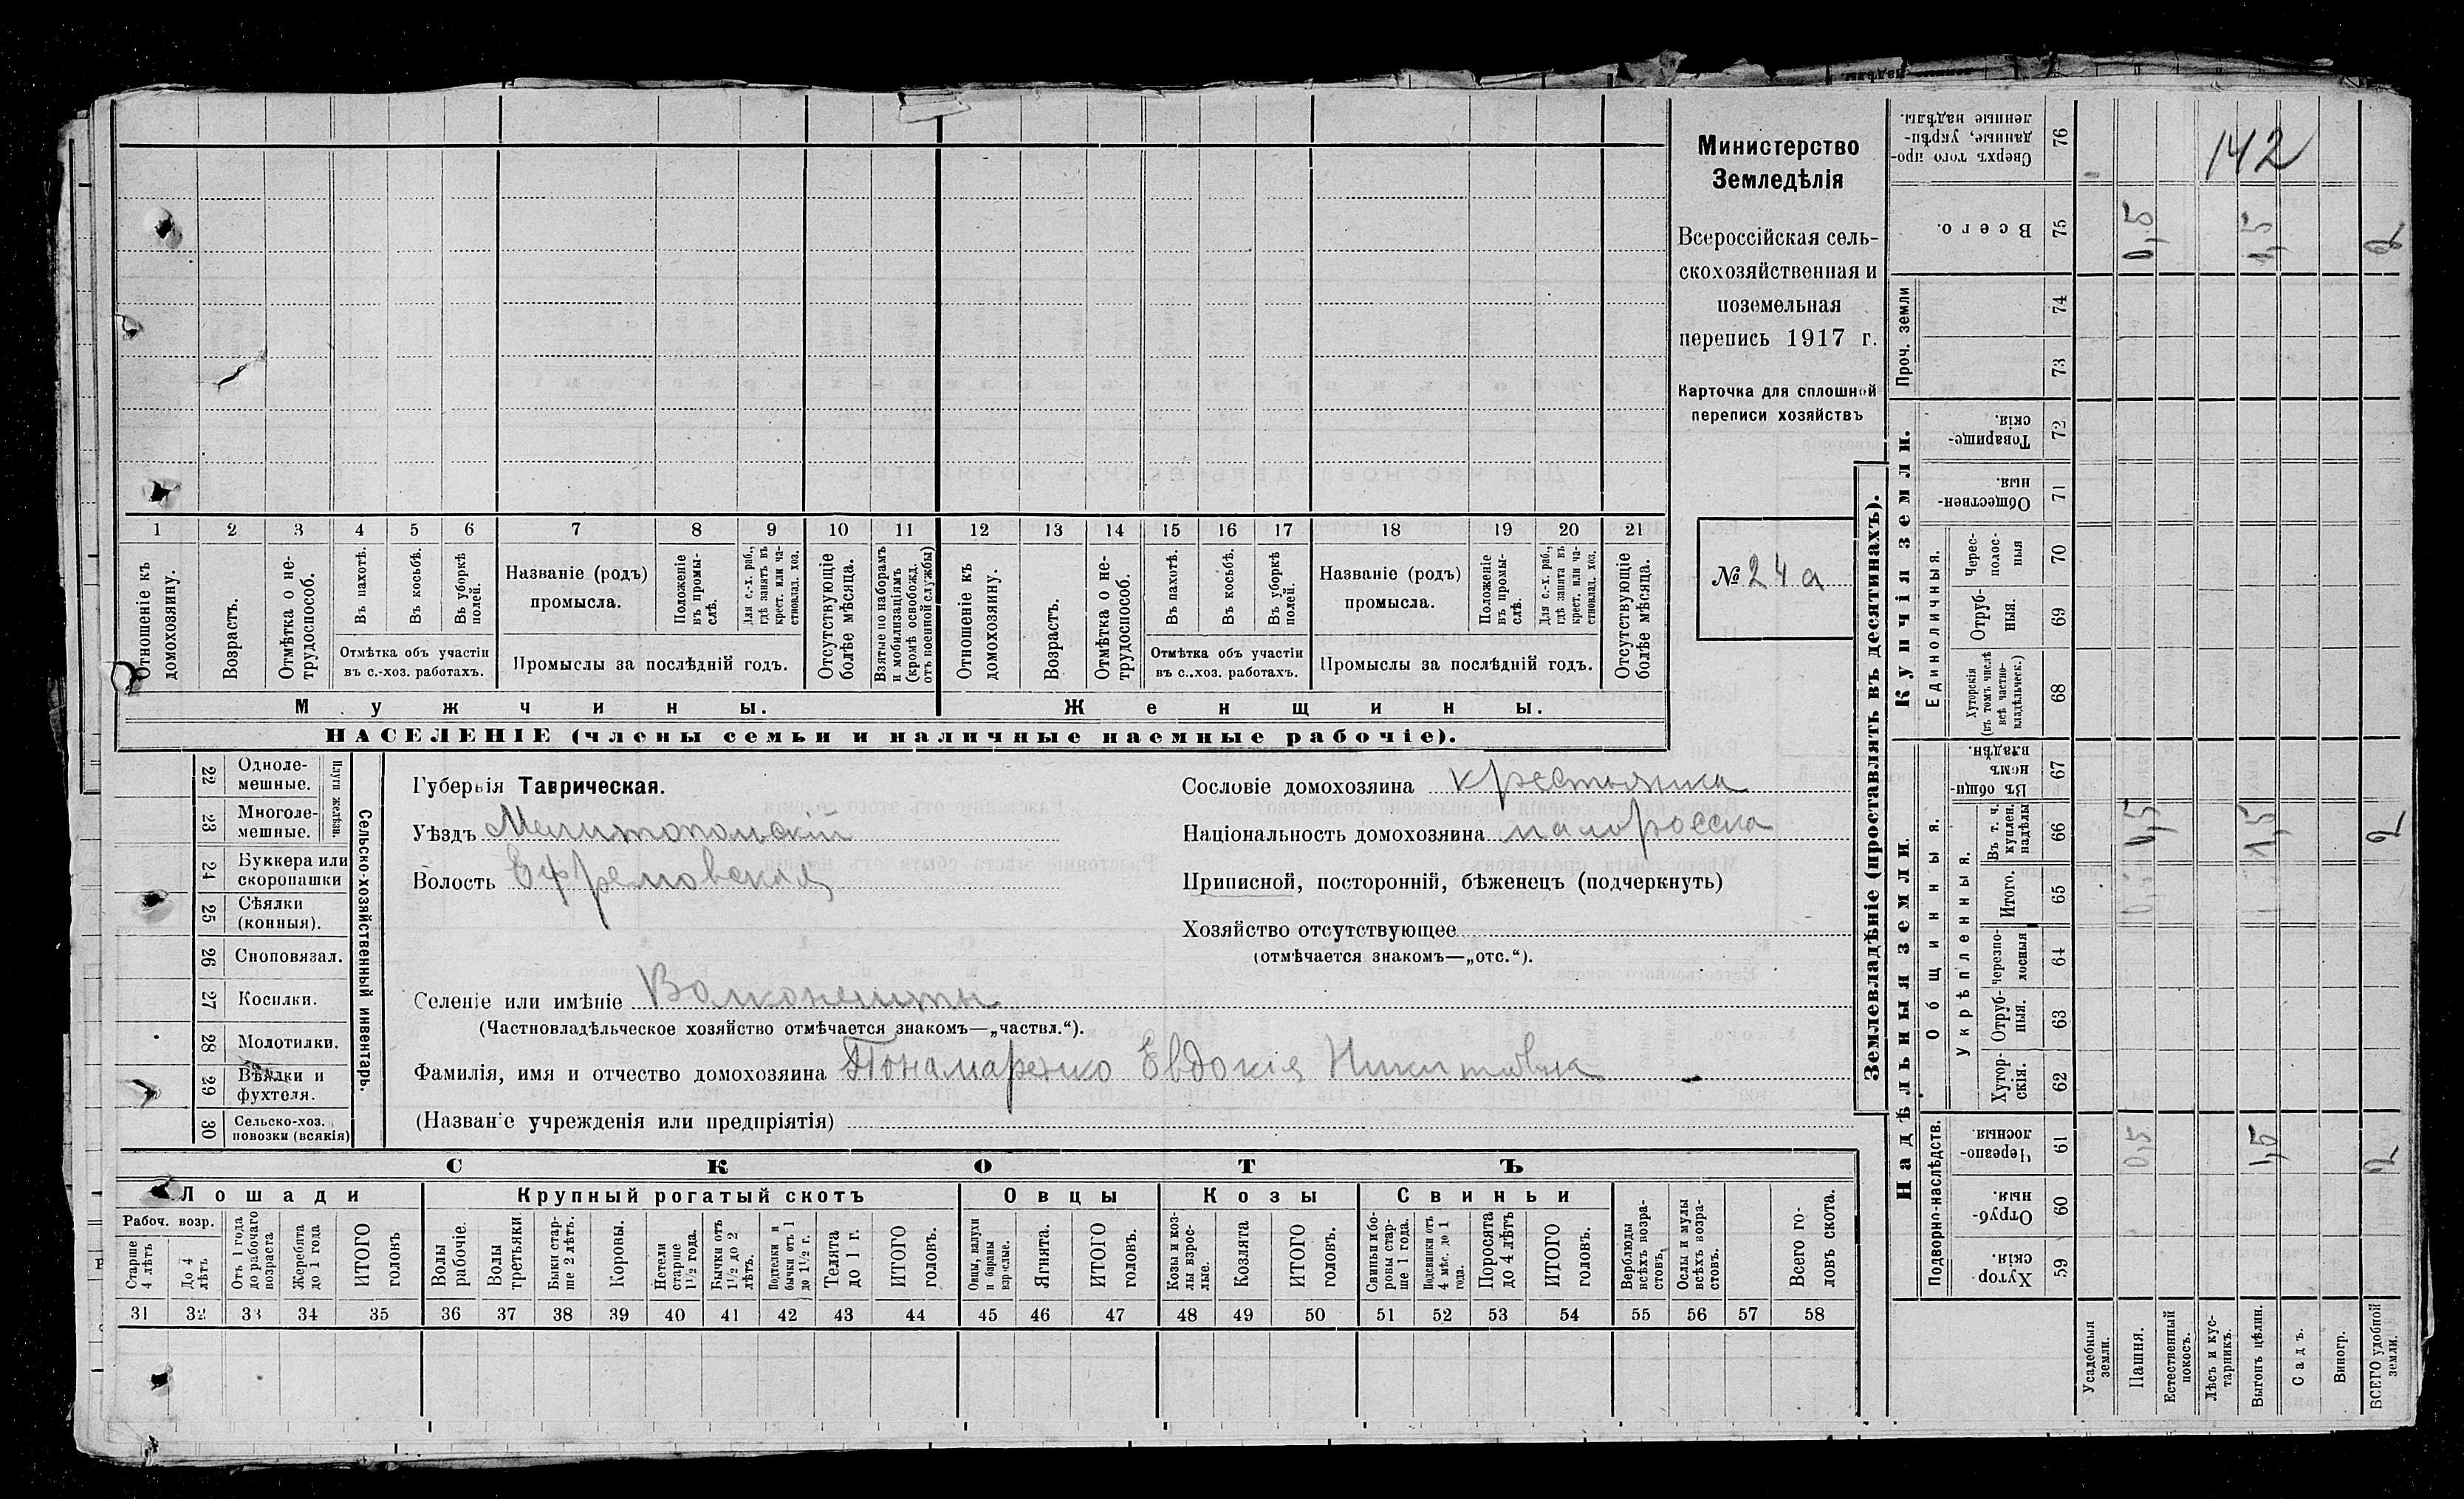 Министерство
Земледѣлія
Всероссійская сель-
скохозяйственная и
поземельная
перепись 1917 г.
Карточка для сплошной
переписи хозяйствъ
№ 24 а
142
1 2 3 4 5 6 7 8 9 10 11 12 13 14 15 16 17 18 19 20 21
Отношеніе къ домохозяину.
Возрастъ.
Отмѣтка о не-трудоспособ.
Въ пахотѣ.
Въ косьбѣ.
Въ уборкѣ полей.
Отмѣтка объ участіи
въ с.-хоз. работахъ.
Названіе (родъ)
промысла.
Положеніе въ промы-слѣ.
Для с.-х. раб., гдѣ занятъ въ крест. или ча-стновлад. хоз.
Промыслы за послѣдній годъ.
Отсутствующіе болѣе мѣсяца.
Взятые по наборамъ и мобилизаціямъ (кромѣ освобожд. отъ военной службы)
Отношеніе къ домохозяину.
Возрастъ.
Отмѣтка о не-трудоспособ.
Въ пахотѣ.
Въ косьбѣ.
Въ уборкѣ полей.
Отмѣтка объ участіи
въ с..хоз. работахъ.
Названіе (родъ)
промысла.
Положеніе въ промы-слѣ.
Для с.-х. раб., гдѣ занята въ крест. или ча-стновлад. хоз.
Промыслы за послѣдній годъ.
Отсутствующіе болѣе мѣсяца.
Мужчины.
Женщины.
НАСЕЛЕНІЕ (члены семьи и наличные наемные рабочіе).
22 Одноле-мешные.
23 Многоле-мешные.
Плуги желѣзн.
24 Буккера или скоропашки
25 Сѣялки (конныя).
26 Сноповязал.
27 Косилки.
28 Молотилки.
29 Вѣялки и фухтеля.
30 Сельско-хоз. повозки (всякія)
Сельско-хозяйственный инвентарь.
Губернія Таврическая.
Уѣздъ Мелитопольскій
Волость Ефремовская
Селеніе или имѣніе Волконешты
(Частновладѣльческое хозяйство отмѣчается знакомъ—„частвл.“).
Фамилія, имя и отчество домохозяина Понамаренко Евдокія Никитовна
(Названіе учрежденія или предпріятія)
Сословіе домохозяина крестьянка
Національность домохозяина малоросска
Приписной, посторонній, бѣженецъ (подчеркнуть)
Хозяйство отсутствующее
(отмѣчается знакомъ—„отс.“).
СКОТЪ
Лошади
Крупный рогатый скотъ
Овцы
Козы
Свиньи
Рабоч. возр.
Старше 4 лѣтъ
До 4 лѣтъ
Отъ 1 года до рабочаго возраста
Жеребята до 1 года
ИТОГО головъ
Волы рабочіе.
Волы третьяки.
Быки стар-ше 2 лѣтъ.
Коровы.
Нетели старше 1½ года.
Бычки отъ 1½ до 2 лѣтъ.
Подтелки и бычки отъ 1 до 1½ г.
Телята до 1 г.
ИТОГО головъ.
Овцы, валухи и бараны взрослые.
Ягнята.
ИТОГО головъ.
Козы и коз-лы взрос-лые.
Козлята
ИТОГО головъ.
Свиньи и бо-ровы стар-ше 1 года.
Подсвинки отъ 4 мѣс. до 1 года.
Поросята до 4 лѣтъ
ИТОГО головъ.
Верблюды всѣхъ возра-стовъ.
Ослы и мулы всѣхъ возра-стовъ.
Всего го-ловъ скота.
31 32 33 34 35 36 37 38 39 40 41 42 43 44 45 46 47 48 49 50 51 52 53 54 55 56 57 58
Землевладѣніе (проставлять въ десятинахъ).
Надѣльныя земли.
Купчія земли.
Проч. земли
Подворно-наслѣдств.
Общинныя.
Укрѣпленныя.
Единоличныя.
Сверхъ того про-данные, укрѣп-ленные надѣлы. 76
Всего. 75 0,5 1,5 2
74
73
Товарище-скія. 72
Обществен-ныя. 71
Черес-полос-ныя 70
Отруб-ныя. 69
Хуторскія (въ томъ числѣ всѣ частно-владѣльческ.) 68
Въ общи-номъ владѣн. 67
Въ т. ч. куплен. надѣлы 66 0,5 1,5 2
Итого. 65
Черезпо-лосныя 64
Отруб-ныя. 63
Хутор-скія. 62
Черезпо-лосныя. 61 0,5 1,5 2
Отруб-ныя. 60
Хутор-скія. 59
Усадебныя земли.
Пашня.
Естественный покосъ.
Лѣсъ и кус-тарникъ.
Выгонъ цѣлин.
Садъ.
Виногр.
ВСЕГО удобной земли.